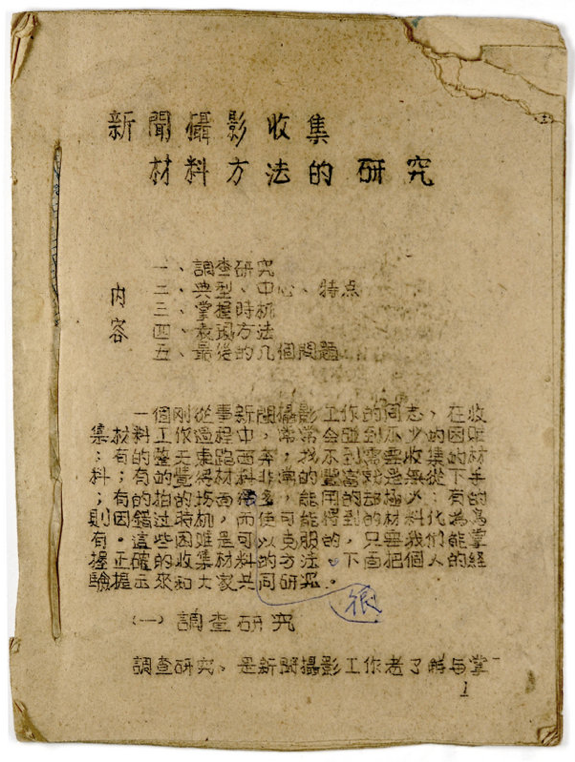 新聞攝影收集
材料方法的研究
内容
一、調查研究
二、典型、中心、特点
三、掌握時机
四、表現方法
五、最後的几個問題
一個刚從事新聞攝影工作的同志，在收
集材料工作過程中，常常会碰到不少的困难
；有的整天東跑西奔，找不到需要收集的材
料；有的覺得材料非常的豐富就是無從下手
；有的拍得場面很多，能用的却極少；有的
則因錯过時机，而使可能得到的材料化為烏
有。這些困难是可以克服的，只要我們能掌
握正確的收集材料的方法。下面把個人的經
驗提出來和大家共同研究。
很
(一) 調查研究
調查研究，是新聞攝影工作者了解与掌
1